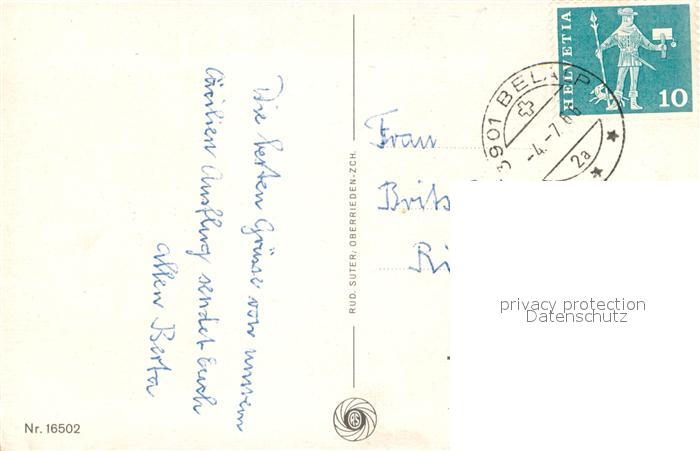 Die besten Grüsse von unserem
Cäcilien Ausflug sendet Euch
allen Berta
Nr. 16502
RUD. SUTER, OBERRIEDEN-ZCH.
RS
HELVETIA
10
3901 BELALP
-4.-7.66
2a
Frau
Brits
Ri
privacy protection
Datenschutz